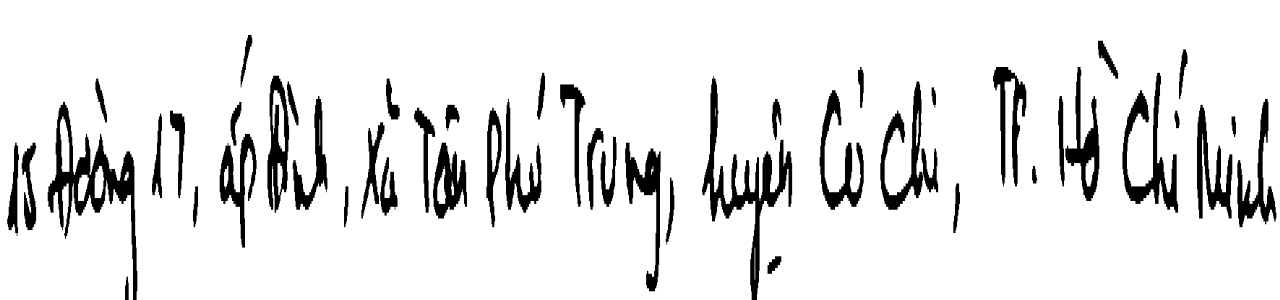 15 Đường 17, ấp Đình, Xã Tân Phú Trung, huyện Củ Chi, TP. Hồ Chí Minh